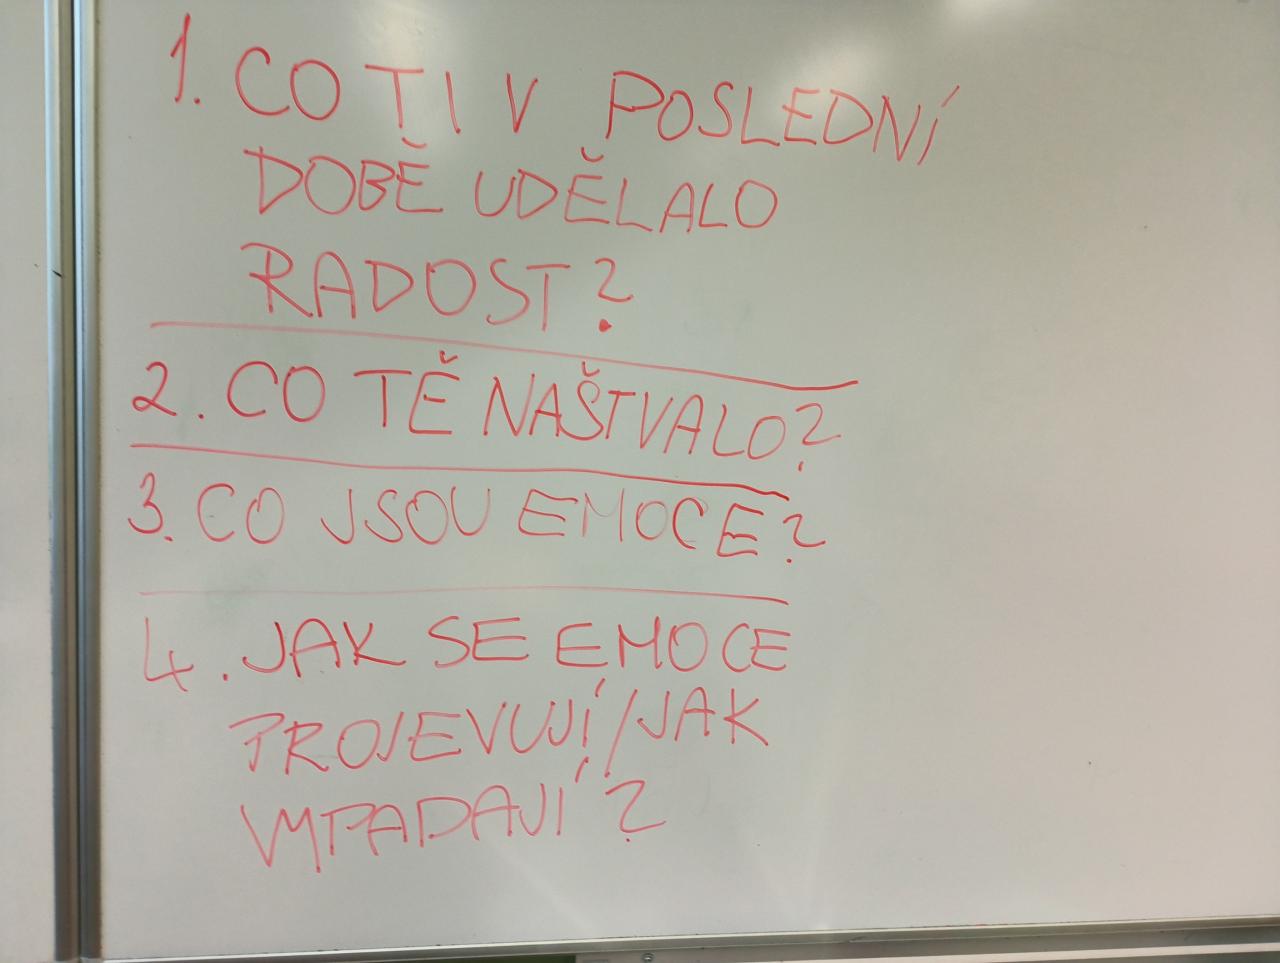 1. CO TI V POSLEDNÍ
DOBĚ UDĚLALO
RADOST?
2. CO TĚ NAŠTVALO?
3. CO JSOU EMOCE?
4. JAK SE EMOCE
PROJEVUJÍ/JAK
VYPADAJÍ?